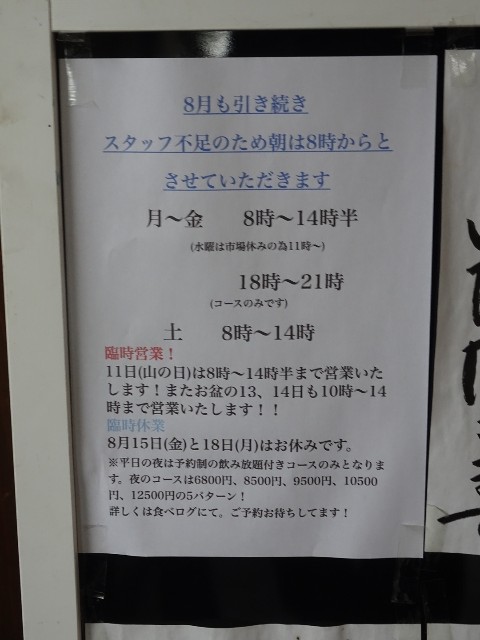 8月も引き続き
スタッフ不足のため朝は8時からと
させていただきます
月〜金　8時〜14時半
(水曜は市場休みの為11時〜)
18時〜21時
(コースのみです)
土　8時〜14時
臨時営業！
11日(山の日)は8時〜14時半まで営業いた
します！またお盆の13、14日も10時〜14
時まで営業いたします！！
臨時休業
8月15日(金)と18日(月)はお休みです。
※平日の夜は予約制の飲み放題付きコースのみとなりま
す。夜のコースは6800円、8500円、9500円、10500
円、12500円の5パターン！
詳しくは食べログにて。ご予約お待ちしてます！